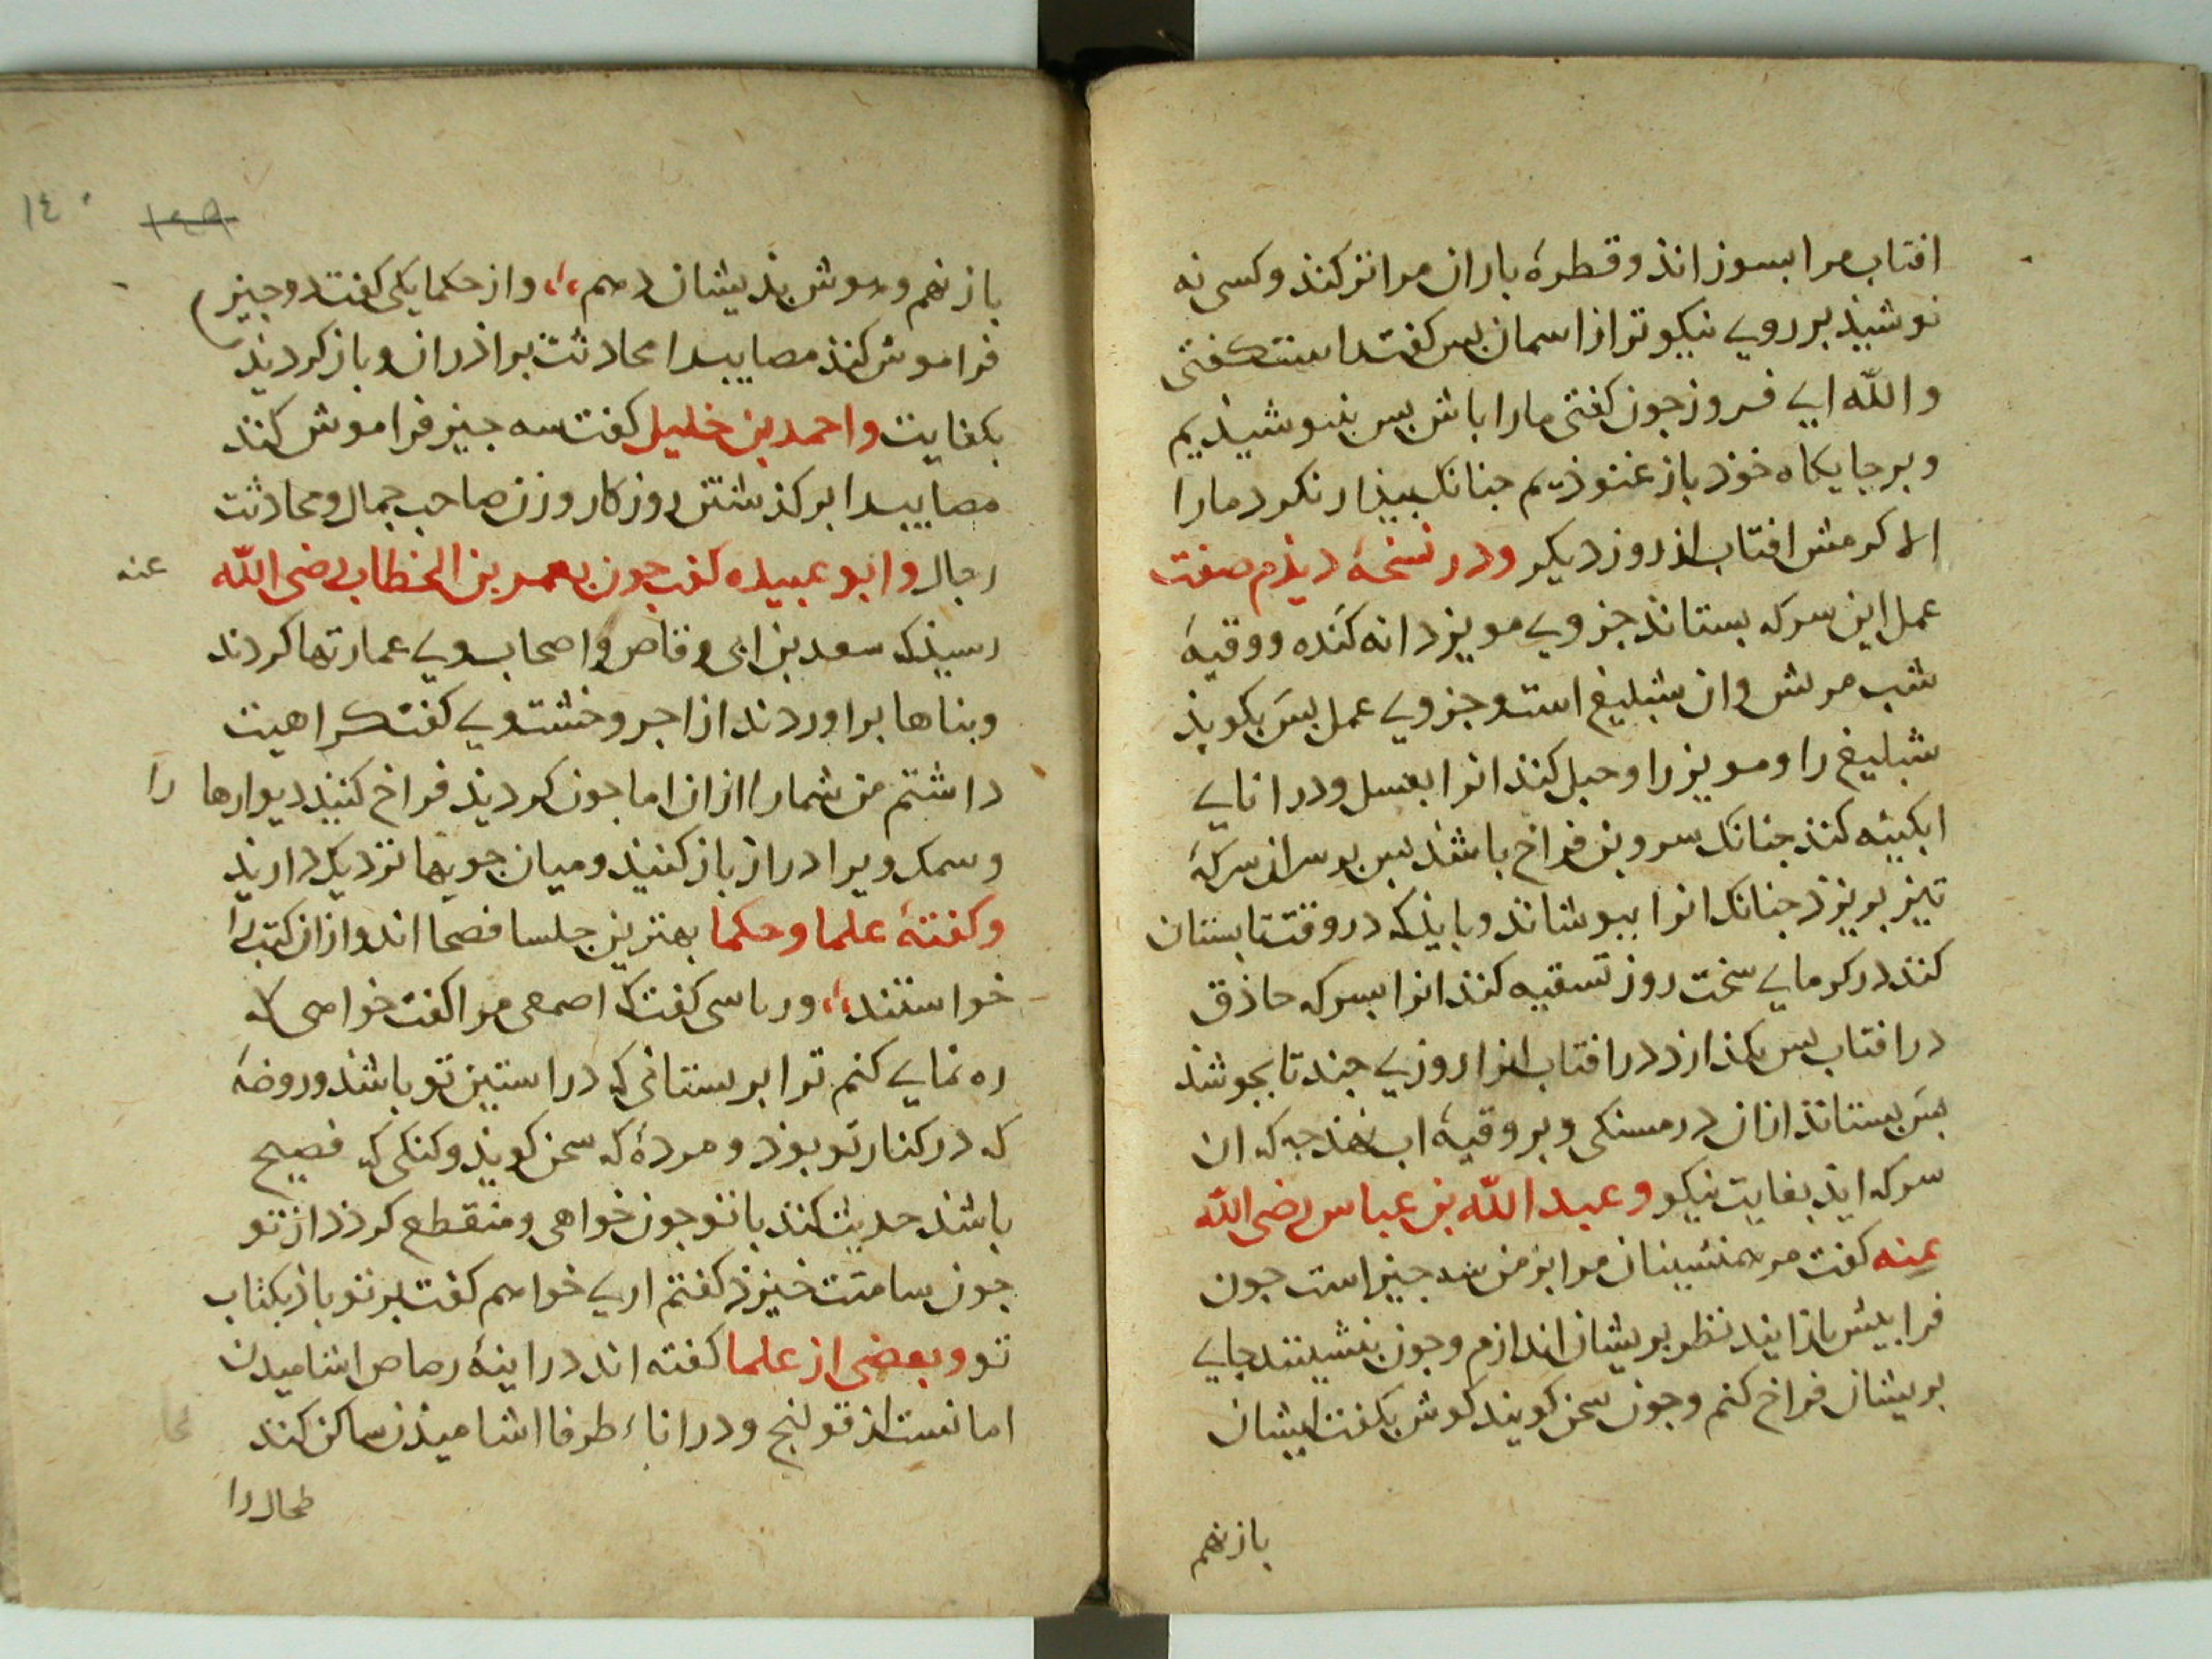 افتاب مرا بسوزانذ و قطرهٔ باران مرا تر کند و کسی نه
نوشیذ بر رویے نیکوتر از اسمان بس کفت راست کفتی
والله ایے فروز جون کفتی مارا باش بس بنوشیذیم
و بر جایکاه خوذ باز غنوذیم جنانک بیذار نکرد مارا
الا کرمش افتاب از روز دیکر و در نسخهٔ دیذم صفت
عمل این سرکه بستانذ جزویے مویز دانه کنده و وقیهٔ
شب مرش وان شبلیغ است و جزویے عمل بس بکوبذ
شبلیغ را و مویز را و حبل کنذ انرا بعسل و در انایے
ابکینه کنذ جنانک سر و بن فراخ باشذ بس بر سر ان سرکهٔ
تیز بریزذ جنانک انرا ببوشانذ و بایذ که در وقت تابستان
کنذ در کرمایے سخت روز تسقیه کنذ انرا بسرکه حاذق
در افتاب بس بکذارذ در افتاب انرا روزیے جند تا بجوشذ
بس بستانذ ازان درمسنکی و بر وقیهٔ اب نهذ جه که ان
سرکه ایذ بغایت نیکو و عبد الله بن عباس رضی الله
عنه کفت مر همنشینان مرا بر من سه جیز است جون
فرا بیش باز ایند نظر بریشان اندازم و جون بنشینند جایے
بریشان فراخ کنم و جون سخن کویند کوش بکفت ایشان
باز نهم
١٤٠
١٤٩
باز نهم و هوش بذیشان دهم ،، و از حکما یکی کفت دو جیز
فراموش کنذ مصایب را محادثت براذران و باز کردیذن
بکفایت و احمد بن خلیل کفت سه جیز فراموش کند
مصایب را بر کذشتن روزکار و زن صاحب جمال و محادثت
رجال و ابو عبیده کفت جون بعمر بن الخطاب رضی الله عنه
رسیذ که سعد بن ابی وقاص و اصحاب ویے عمارتها کردند
و بناها براوردند از اجر و خشت ویے کفت کراهیت
داشتم من شمارا ازان اما جون کردیذ فراخ کنیذ دیوارها را
و سمک ویرا دراز باز کنیذ و میان جویها نزدیک داریذ
و کفتهٔ علما و حکما بهترین جلسا فصحا اند و ازان کتب را
خواستند ،، و ریاسی کفت که اصمعی مرا کفت خواهی که
ره نمایے کنم ترا بر بستانی که در استین تو باشذ و روضهٔ
که در کنار تو بوذ و مردهٔ که سخن کویذ و کنکی که فصیح
باشذ حدیث کند با تو جون خواهی و منقطع کردذ از تو
جون سامتت خیزذ کفتم اریے خواهم کفت بر تو باز بکتاب
تو و بعضی از علما کفته اند در اینهٔ رصاص اشامیدن
امانست از قولنج و در اناء طرفا اشامیذن ساکن کند
طحال را